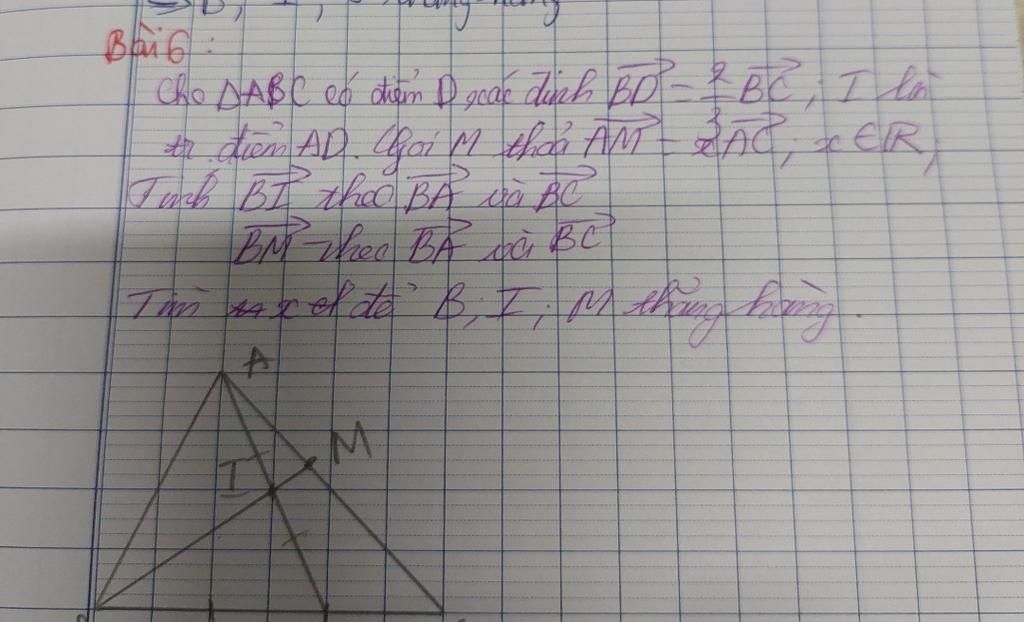 ⇒ B, I,
Bài 6:
Cho ΔABC có điểm D xác định BD = 2/3 BC; I là
tr. điểm AD. Gọi M thoả AM = xAC; x ∈ R,
Tính BI theo BA và BC
BM theo BA và BC
Tìm x để B; I; M thẳng hàng.
A
M
I